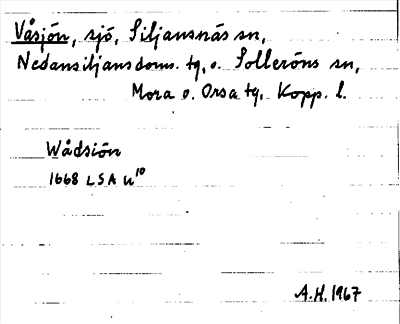 Våsjön, sjö, Siljansnäs sn,
Nedansiljans doms. tg, o. Solleröns sn,
Mora o. Orsa tg, Kopp. l.
Wådsiön
1668 LSA U¹⁰
A.H. 1967